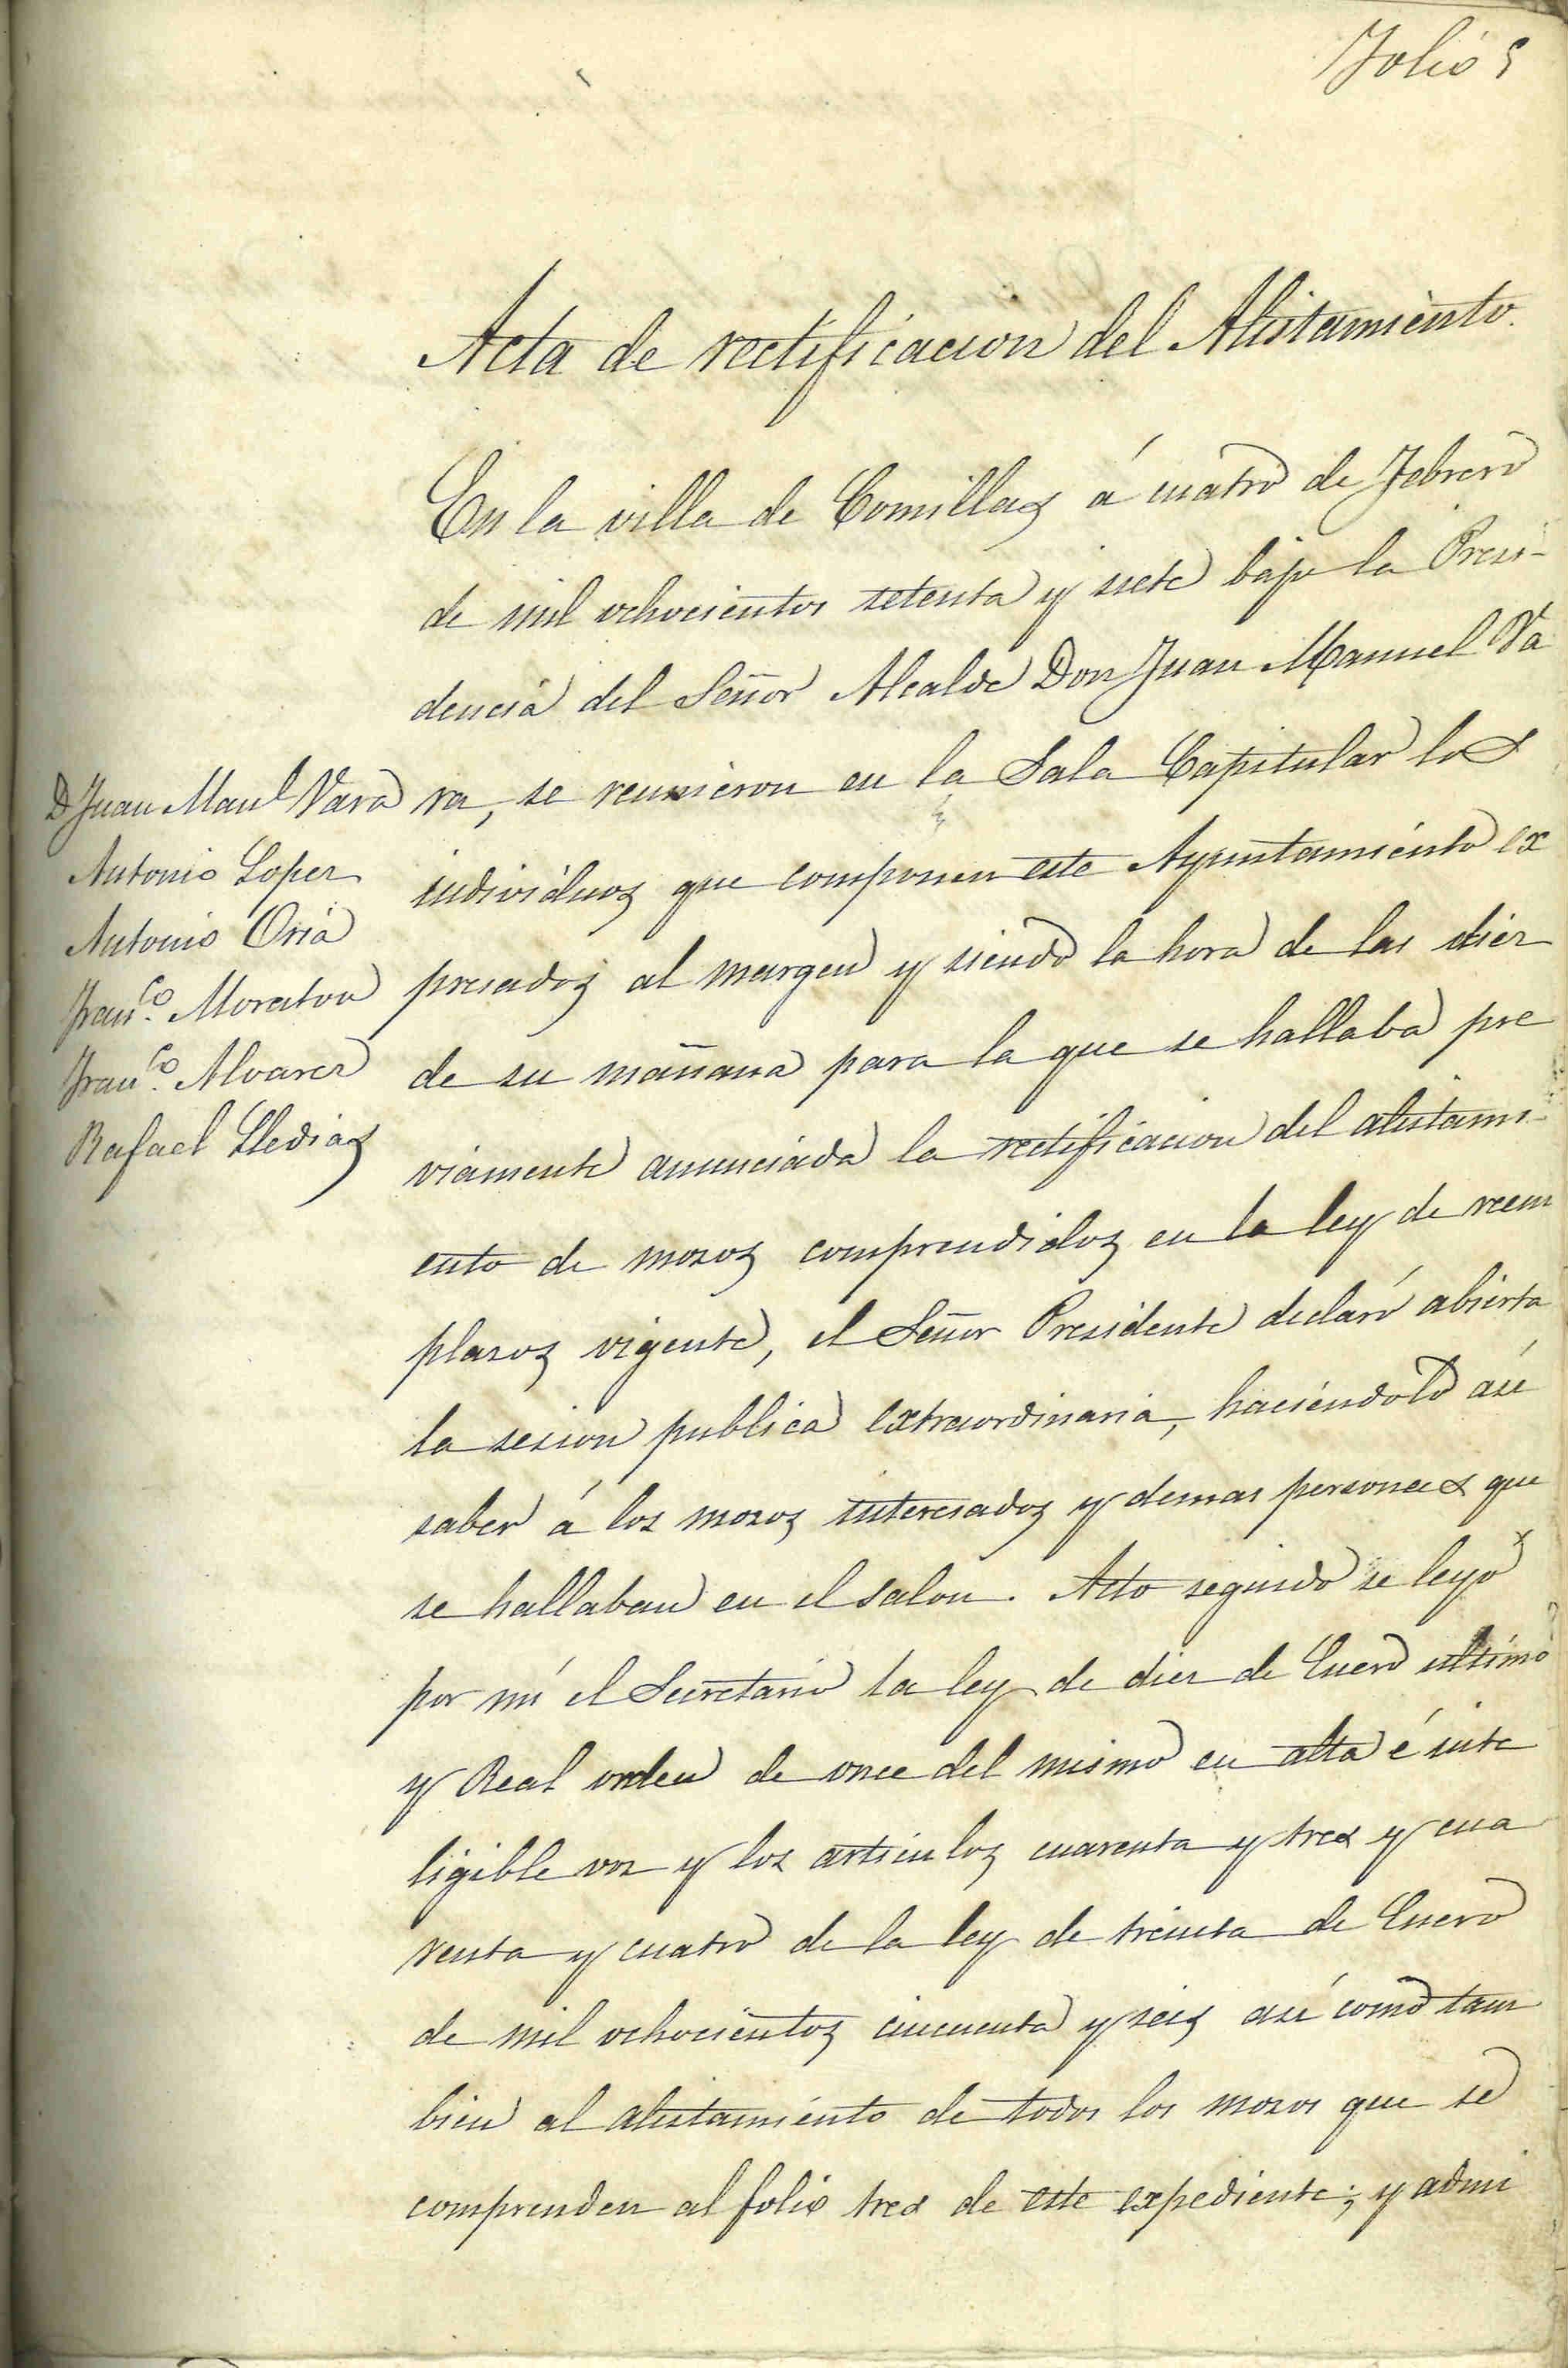 Folio 5
Acta de rectificacion del Alistamiento.
En la villa de Comillas á cuatro de Febrero
de mil ochocientos setenta y siete bajo la Presi-
dencia del Señor Alcalde Don Juan Manuel Va
ra, se reunieron en la Sala Capitular los
individuos que componen este Ayuntamiento ex
presados al margen y siendo la hora de las diez
de su mañana para la que se hallaba pre
viamente anunciada la rectificacion del alistami-
ento de mozos comprendidos en la ley de reem
plazos vigente, el Señor Presidente declaró abierta
la sesion publica extraordinaria, haciéndolo así
saber á los mozos interesados y demas personas que
se hallaban en el salon. Acto seguido se leyó
por mí el Secretario la ley de diez de Enero ultimo
y Real orden de once del mismo en alta é inte
ligible voz y los articulos cuarenta y tres y cua
renta y cuatro de la ley de treinta de Enero
de mil ochocientos cincuenta y seis así como tam
bien al alistamiento de todos los mozos que se
comprenden al folio tres de este expediente; y admi
D Juan Manl Vara
Antonio Lopez
Antonio Oria
Franco. Moraton
Franco. Alvarez
Rafael Lledias